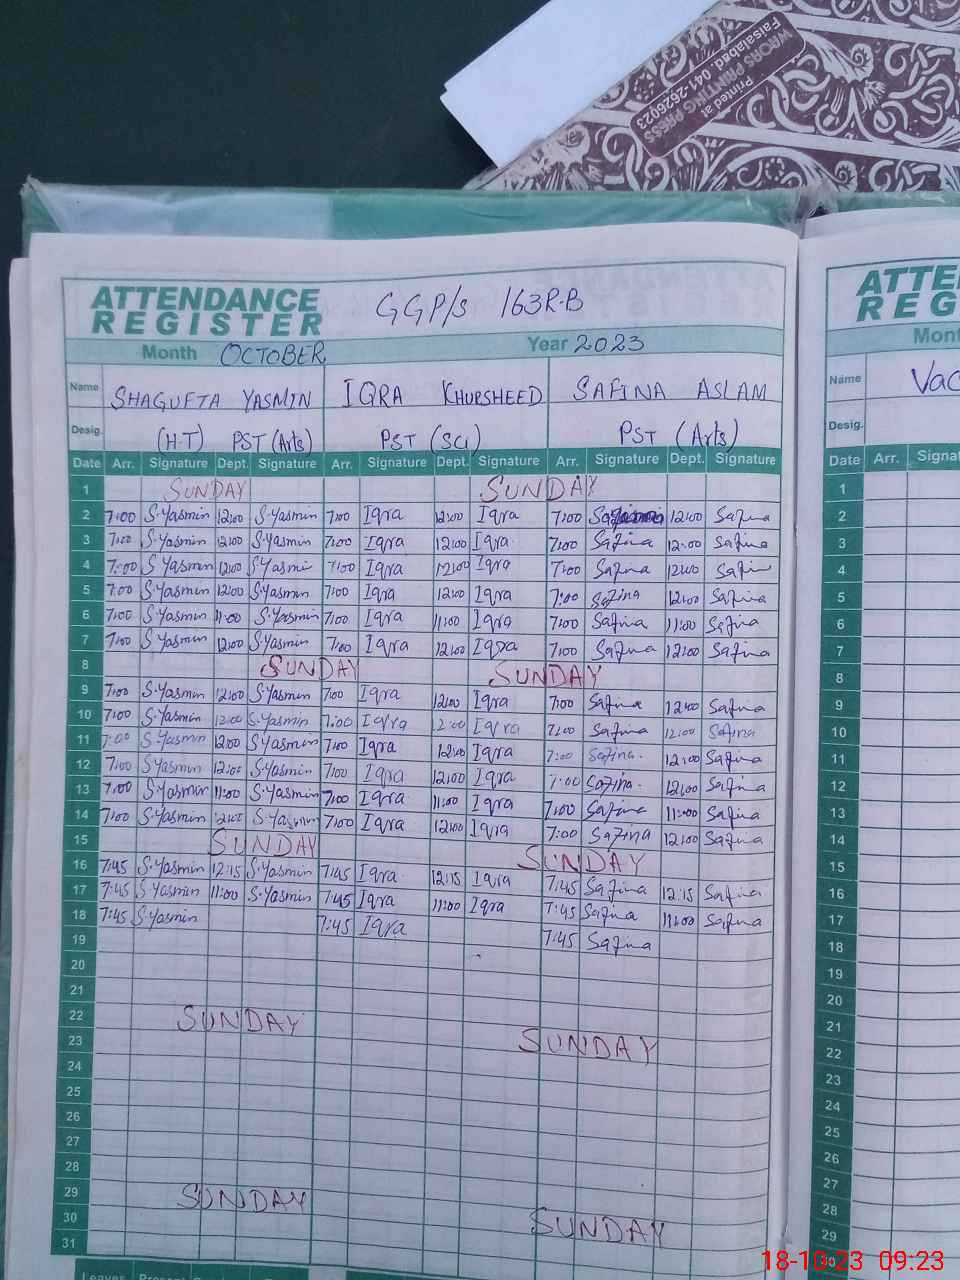 Printed at
WAQAS PRINTING PRESS
Faisalabad. 041-2626023
ATTENDANCE REGISTER GGP/s 163R.B
Month OCTOBER Year 2023
Name SHAGUFTA YASMIN IQRA KHURSHEED SAFINA ASLAM
Desig. (H.T) PST (Arts) PST (SCI) PST (Arts)
Date Arr. Signature Dept. Signature Arr. Signature Dept. Signature Arr. Signature Dept. Signature
1 SUNDAY SUNDAY
2 7:00 S.Yasmin 12:00 S.Yasmin 7:00 Iqra 12:00 Iqra 7:00 12:00 Safina
3 7:00 S.Yasmin 12:00 S.Yasmin 7:00 Iqra 12:00 Iqra 7:00 Safina 12:00 Safina
4 7:00 S.Yasmin 12:00 S.Yasmin 7:00 Iqra 12:00 Iqra 7:00 Safina 12:00 Safina
5 7:00 S.Yasmin 12:00 S.Yasmin 7:00 Iqra 12:00 Iqra 7:00 Safina 12:00 Safina
6 7:00 S.Yasmin 11:00 S.Yasmin 7:00 Iqra 11:00 Iqra 7:00 Safina 11:00 Safina
7 7:00 S.Yasmin 12:00 S.Yasmin 7:00 Iqra 12:00 Iqra 7:00 Safina 12:00 Safina
8 SUNDAY SUNDAY
9 7:00 S.Yasmin 12:00 S.Yasmin 7:00 Iqra 12:00 Iqra 7:00 Safina 12:00 Safina
10 7:00 S.Yasmin 12:00 S.Yasmin 7:00 Iqra 12:00 Iqra 7:00 Safina 12:00 Safina
11 7:00 S.Yasmin 12:00 S.Yasmin 7:00 Iqra 12:00 Iqra 7:00 Safina. 12:00 Safina
12 7:00 S.Yasmin 12:00 S.Yasmin 7:00 Iqra 12:00 Iqra 7:00 Safina. 12:00 Safina
13 7:00 S.Yasmin 11:00 S.Yasmin 7:00 Iqra 11:00 Iqra 7:00 Safina 11:00 Safina
14 7:00 S.Yasmin 12:00 S.Yasmin 7:00 Iqra 12:00 Iqra 7:00 Safina 12:00 Safina
15 SUNDAY SUNDAY
16 7:45 S.Yasmin 12:15 S.Yasmin 7:45 Iqra 12:15 Iqra 7:45 Safina 12:15 Safina
17 7:45 S.Yasmin 11:00 S.Yasmin 7:45 Iqra 11:00 Iqra 7:45 Safina 11:00 Safina
18 7:45 S.Yasmin 7:45 Iqra 7:45 Safina
19
20
21
22 SUNDAY SUNDAY
23
24
25
26
27
28
29 SUNDAY SUNDAY
30
31
Leaves Present
ATTE
REG
Mont
Name Vac
Desig.
Date Arr. Signat
1
2
3
4
5
6
7
8
9
10
11
12
13
14
15
16
17
18
19
20
21
22
23
24
25
26
27
28
29
30
18-10-23 09:23